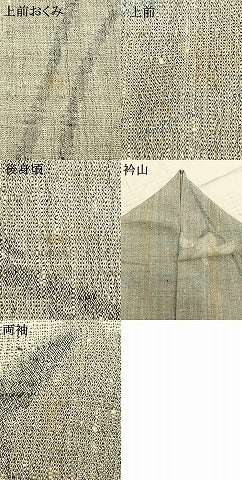 上前おくみ
上前
後身頃
衿山
両袖